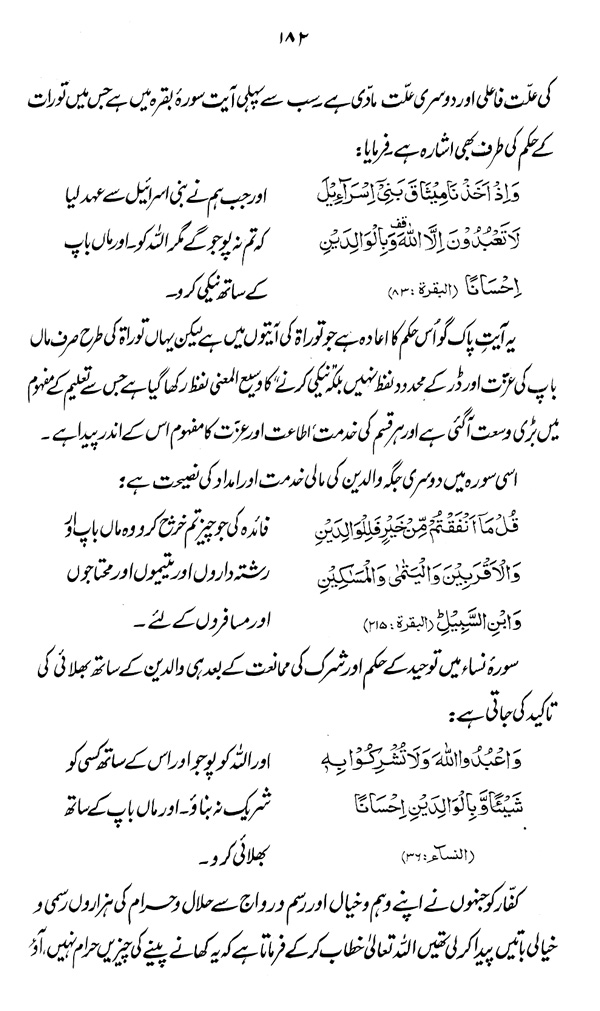 ۱۸۲
کی علّت فاعلی اور دوسری علّت مادّی ہے۔ سب سے پہلی آیت سورۂ بقرہ میں ہے جس میں تورات
کے حکم کی طرف بھی اشارہ ہے۔ فرمایا:
وَاِذْ اَخَذْنَا مِيْثَاقَ بَنِيْٓ اِسْرَآءِيْلَ اور جب ہم نے بنی اسرائیل سے عہد لیا
لَا تَعْبُدُوْنَ اِلَّا اللّٰهَ قف وَبِالْوَالِدَيْنِ کہ تم نہ پوجو گے مگر اللہ کو۔ اور ماں باپ
اِحْسَانًا (البقرة : ۸۳) کے ساتھ نیکی کرو۔
یہ آیتِ پاک گو اُس حکم کا اعادہ ہے جو توراۃ کی آیتوں میں ہے لیکن یہاں توراۃ کی طرح صرف ماں
باپ کی عزّت اور ڈر کے محدود لفظ نہیں بلکہ ’نیکی کرنے‘ کا وسیع المعنی لفظ رکھا گیا ہے جس سے تعلیم کے مفہوم
میں بڑی وسعت آ گئی ہے اور ہر قسم کی خدمت‘ اطاعت اور عزّت کا مفہوم اس کے اندر پیدا ہے۔
اسی سورہ میں دوسری جگہ والدین کی مالی خدمت اور امداد کی نصیحت ہے:
قُلْ مَآ اَنْفَقْتُمْ مِّنْ خَيْرٍ فَلِلْوَالِدَيْنِ فائدہ کی جو چیز تم خرچ کرو وہ ماں باپ اور
وَالْاَقْرَبِيْنَ وَالْيَتٰمٰى وَالْمَسٰكِيْنِ رشتہ داروں اور یتیموں اور محتاجوں
وَابْنِ السَّبِيْلِ ط (البقرة : ۲۱۵) اور مسافروں کے لئے۔
سورۂ نساء میں توحید کے حکم اور شرک کی ممانعت کے بعد ہی والدین کے ساتھ بھلائی کی
تاکید کی جاتی ہے:
وَاعْبُدُوا اللّٰهَ وَلَا تُشْرِكُوْا بِهٖ اور اللہ کو پوجو اور اس کے ساتھ کسی کو
شَيْئًا وَّبِالْوَالِدَيْنِ اِحْسَانًا شریک نہ بناؤ۔ اور ماں باپ کے ساتھ
(النساء : ۳۶) بھلائی کرو۔
کفّار کو جنہوں نے اپنے وہم و خیال اور رسم و رواج سے حلال و حرام کی ہزاروں رسمی و
خیالی باتیں پیدا کر لی تھیں اللہ تعالیٰ خطاب کر کے فرماتا ہے کہ یہ کھانے پینے کی چیزیں حرام نہیں، آؤ